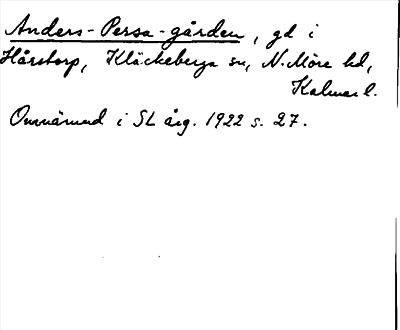 Anders-Persa-gården, gd i
Hårstorp, Kläckeberga sn, N. Möre hd,
Kalmar l.
Omnämnd i SL årg. 1922 s. 27.